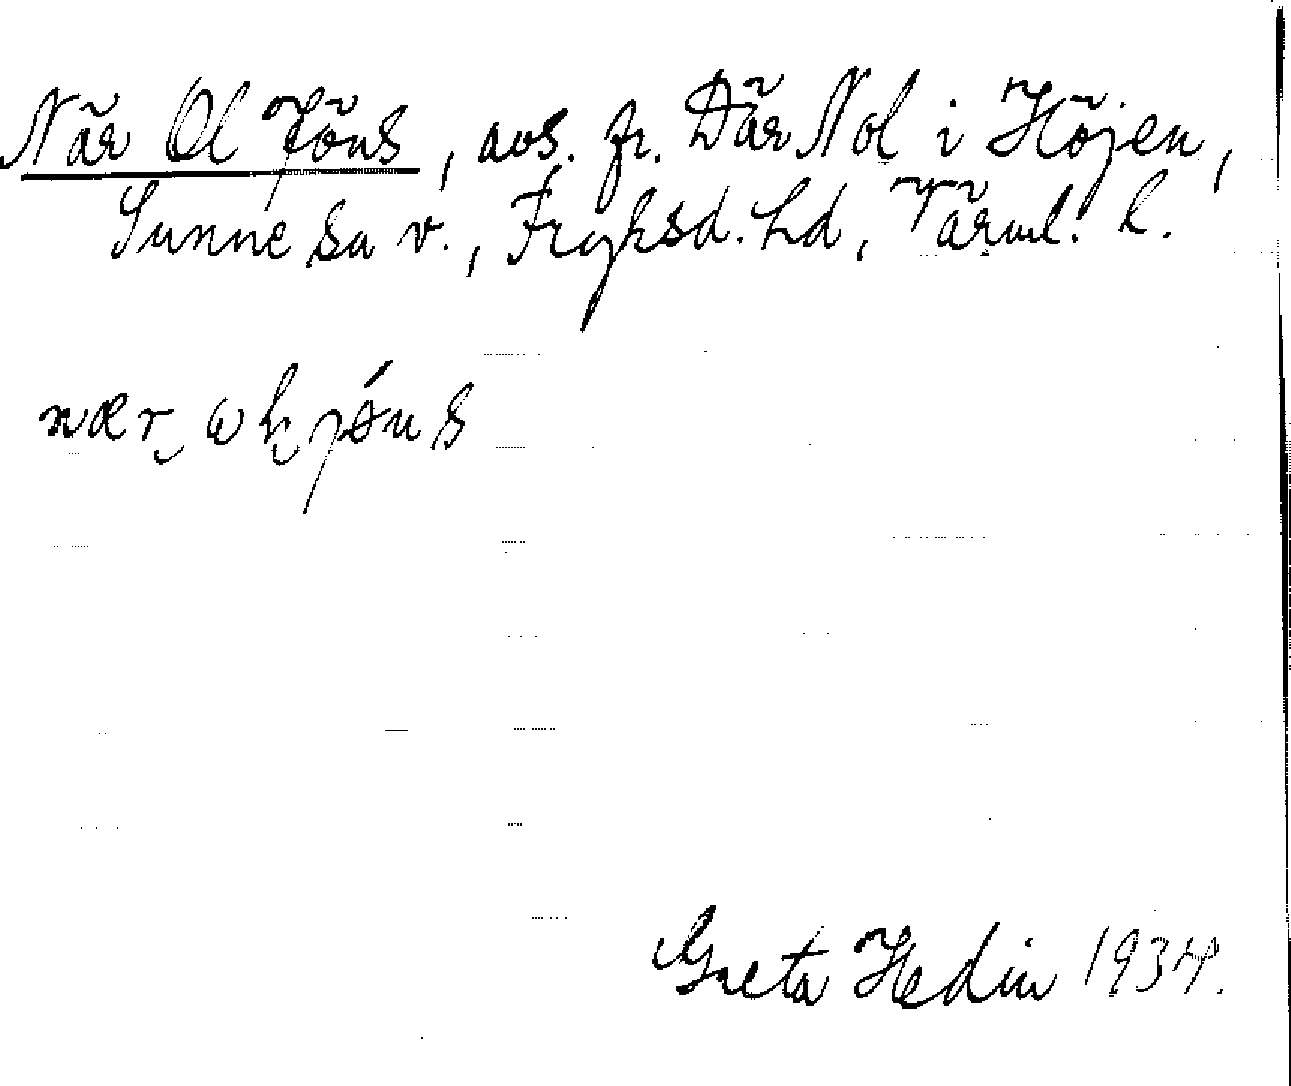 När Ol Jöns, avs. fr. Där Nol i Höjen,
Sunne sn v., Fryksd. hd, Värml. l.
nær ωl jöns
Greta Hedin 1934.